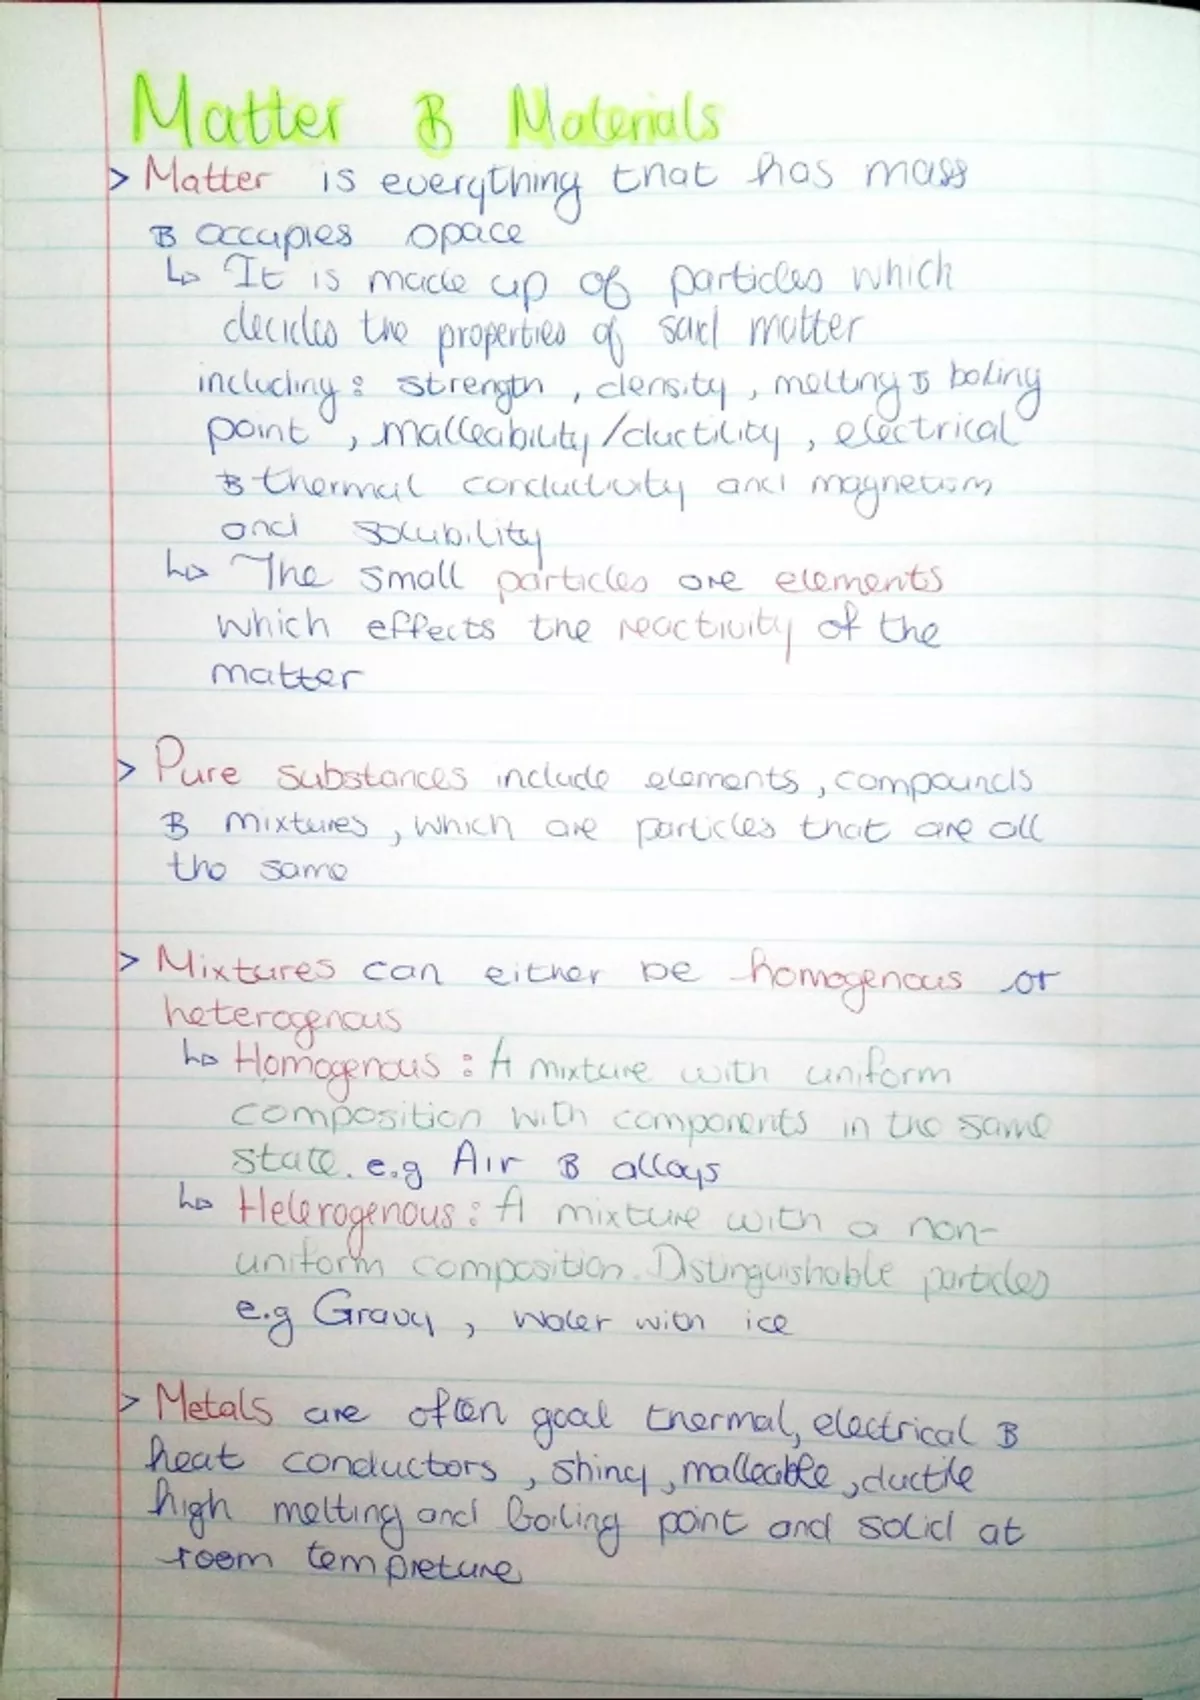 Matter & Materials
> Matter is everything that has mass
& occupies space
↳ It is made up of particles which
decides the properties of said matter
including: strength, density, melting & boiling
point, malleability/ductility, electrical
& thermal conductivity and magnetism
and solubility
↳ The small particles are elements
which effects the reactivity of the
matter
> Pure substances include elements, compounds
& mixtures, which are particles that are all
the same
> Mixtures can either be homogenous or
heterogenous
↳ Homogenous: A mixture with uniform
composition with components in the same
state. e.g Air & alloys
↳ Heterogenous: A mixture with a non-
uniform composition. Distinguishable particles
e.g Gravy, water with ice
> Metals are often good thermal, electrical &
heat conductors, shiny, malleable, ductile
high melting and boiling point and solid at
room tempreture